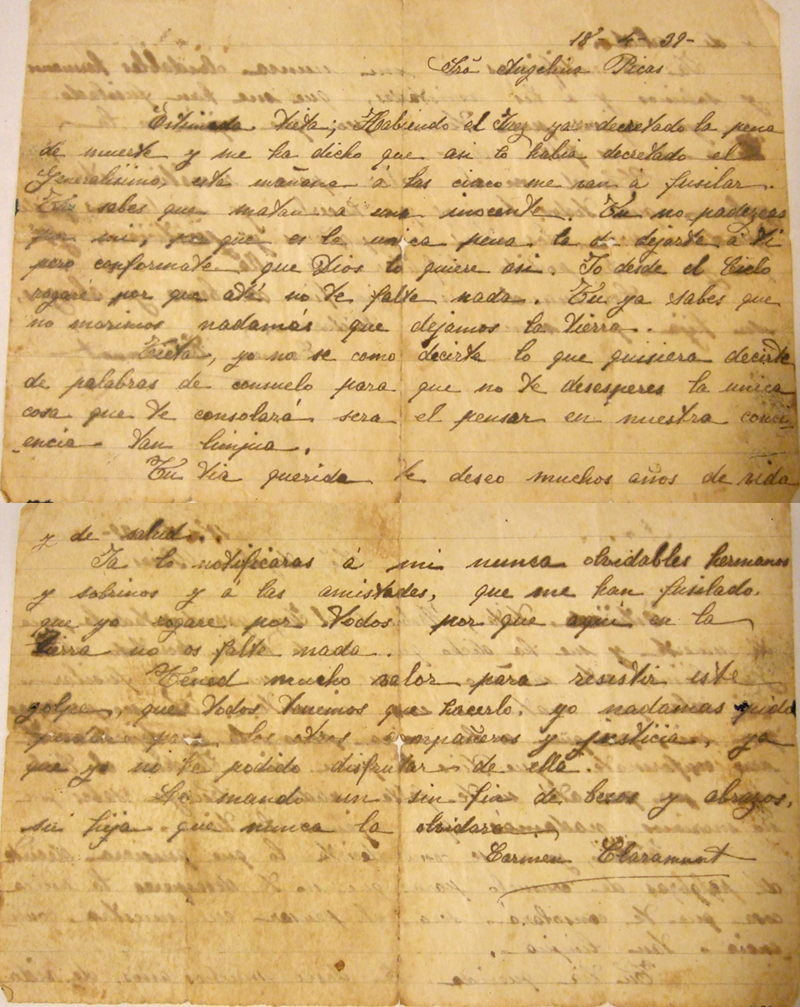 18 - 4 - 39 -
Sra Angelina Picas
Estimada Tieta; Habiendo el Juez ya decretado la pena
de muerte y me ha dicho que asi lo habia decretado el
Generalisimo, esta mañana á las cinco me van á fusilar.
Tu sabes que matan a una inocente. Tu no padezcas
por mi, por que es la unica pena la de dejarte á ti
pero conformate que Dios lo quiere asi. Yo desde el Cielo
rogaré por que a te no te falte nada. Tu ya sabes que
no morimos nadamás que dejamos la tierra.
Tieta, yo no se como decirte lo que quisiera decirte
de palabras de consuelo para que no te desesperes la unica
cosa que te consolará sera el pensar en nuestra conci-
-encia tan limpia.
Tu tia querida te deseo muchos años de vida
y de salud..
Ya lo notificaras á mi nunca olvidables hermanos
y sobrinos y á las amistades, que me han fusilado.
que yo rogare por todos por que aqui en la
tierra no os falte nada.
Tened mucho valor para resistir este
golpe, que todos tenemos que hacerlo. yo nadamas pido
para los otros compañeros y justicia, ya
que yo no he podido disfrutar de ella.
Le mando un sin fin de bezos y abrazos,
su hija que nunca la olvidara
Carmen Claramunt